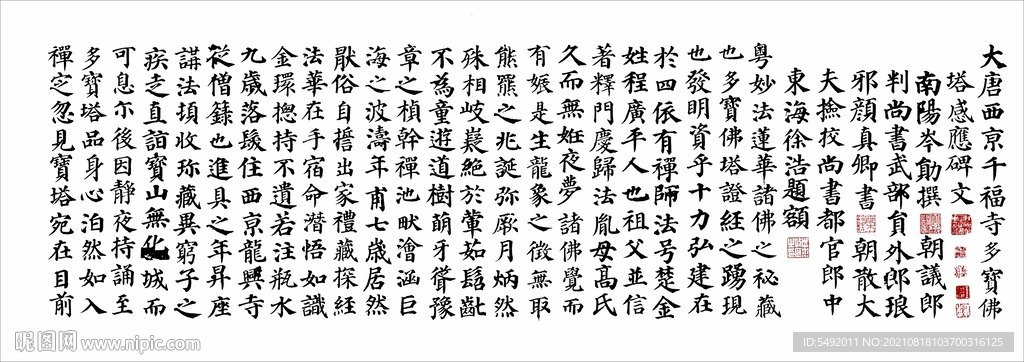 大唐西京千福寺多寶佛
塔感應碑文
南陽岑勛撰 朝議郎
判尚書武部員外郎琅
邪顏真卿書 朝散大
夫撿挍尚書都官郎中
東海徐浩題額
粵妙法蓮華諸佛之秘藏
也多寶佛塔證經之踴現
也發明資乎十力弘建在
於四依有禪師法号楚金
姓程廣平人也祖父並信
著釋門慶歸法胤母高氏
久而無姙夜夢諸佛覺而
有娠是生龍象之徵無取
熊羆之兆誕弥厥月炳然
殊相岐嶷絕於葷茹髫齔
不為童遊道樹萌牙聳豫
章之楨幹禪池畎澮涵巨
海之波濤年甫七歲居然
厭俗自誓出家禮藏探經
法華在手宿命潛悟如識
金環揔持不遺若注瓶水
九歲落髮住西京龍興寺
從僧籙也進具之年昇座
講法頃收弥藏異窮子之
疾走直詣寶山無化城而
可息尒後因靜夜持誦至
多寶塔品身心泊然如入
禪定忽見寶塔宛在目前
昵图网 www.nipic.com
ID:5492011 NO:20210818103700316125